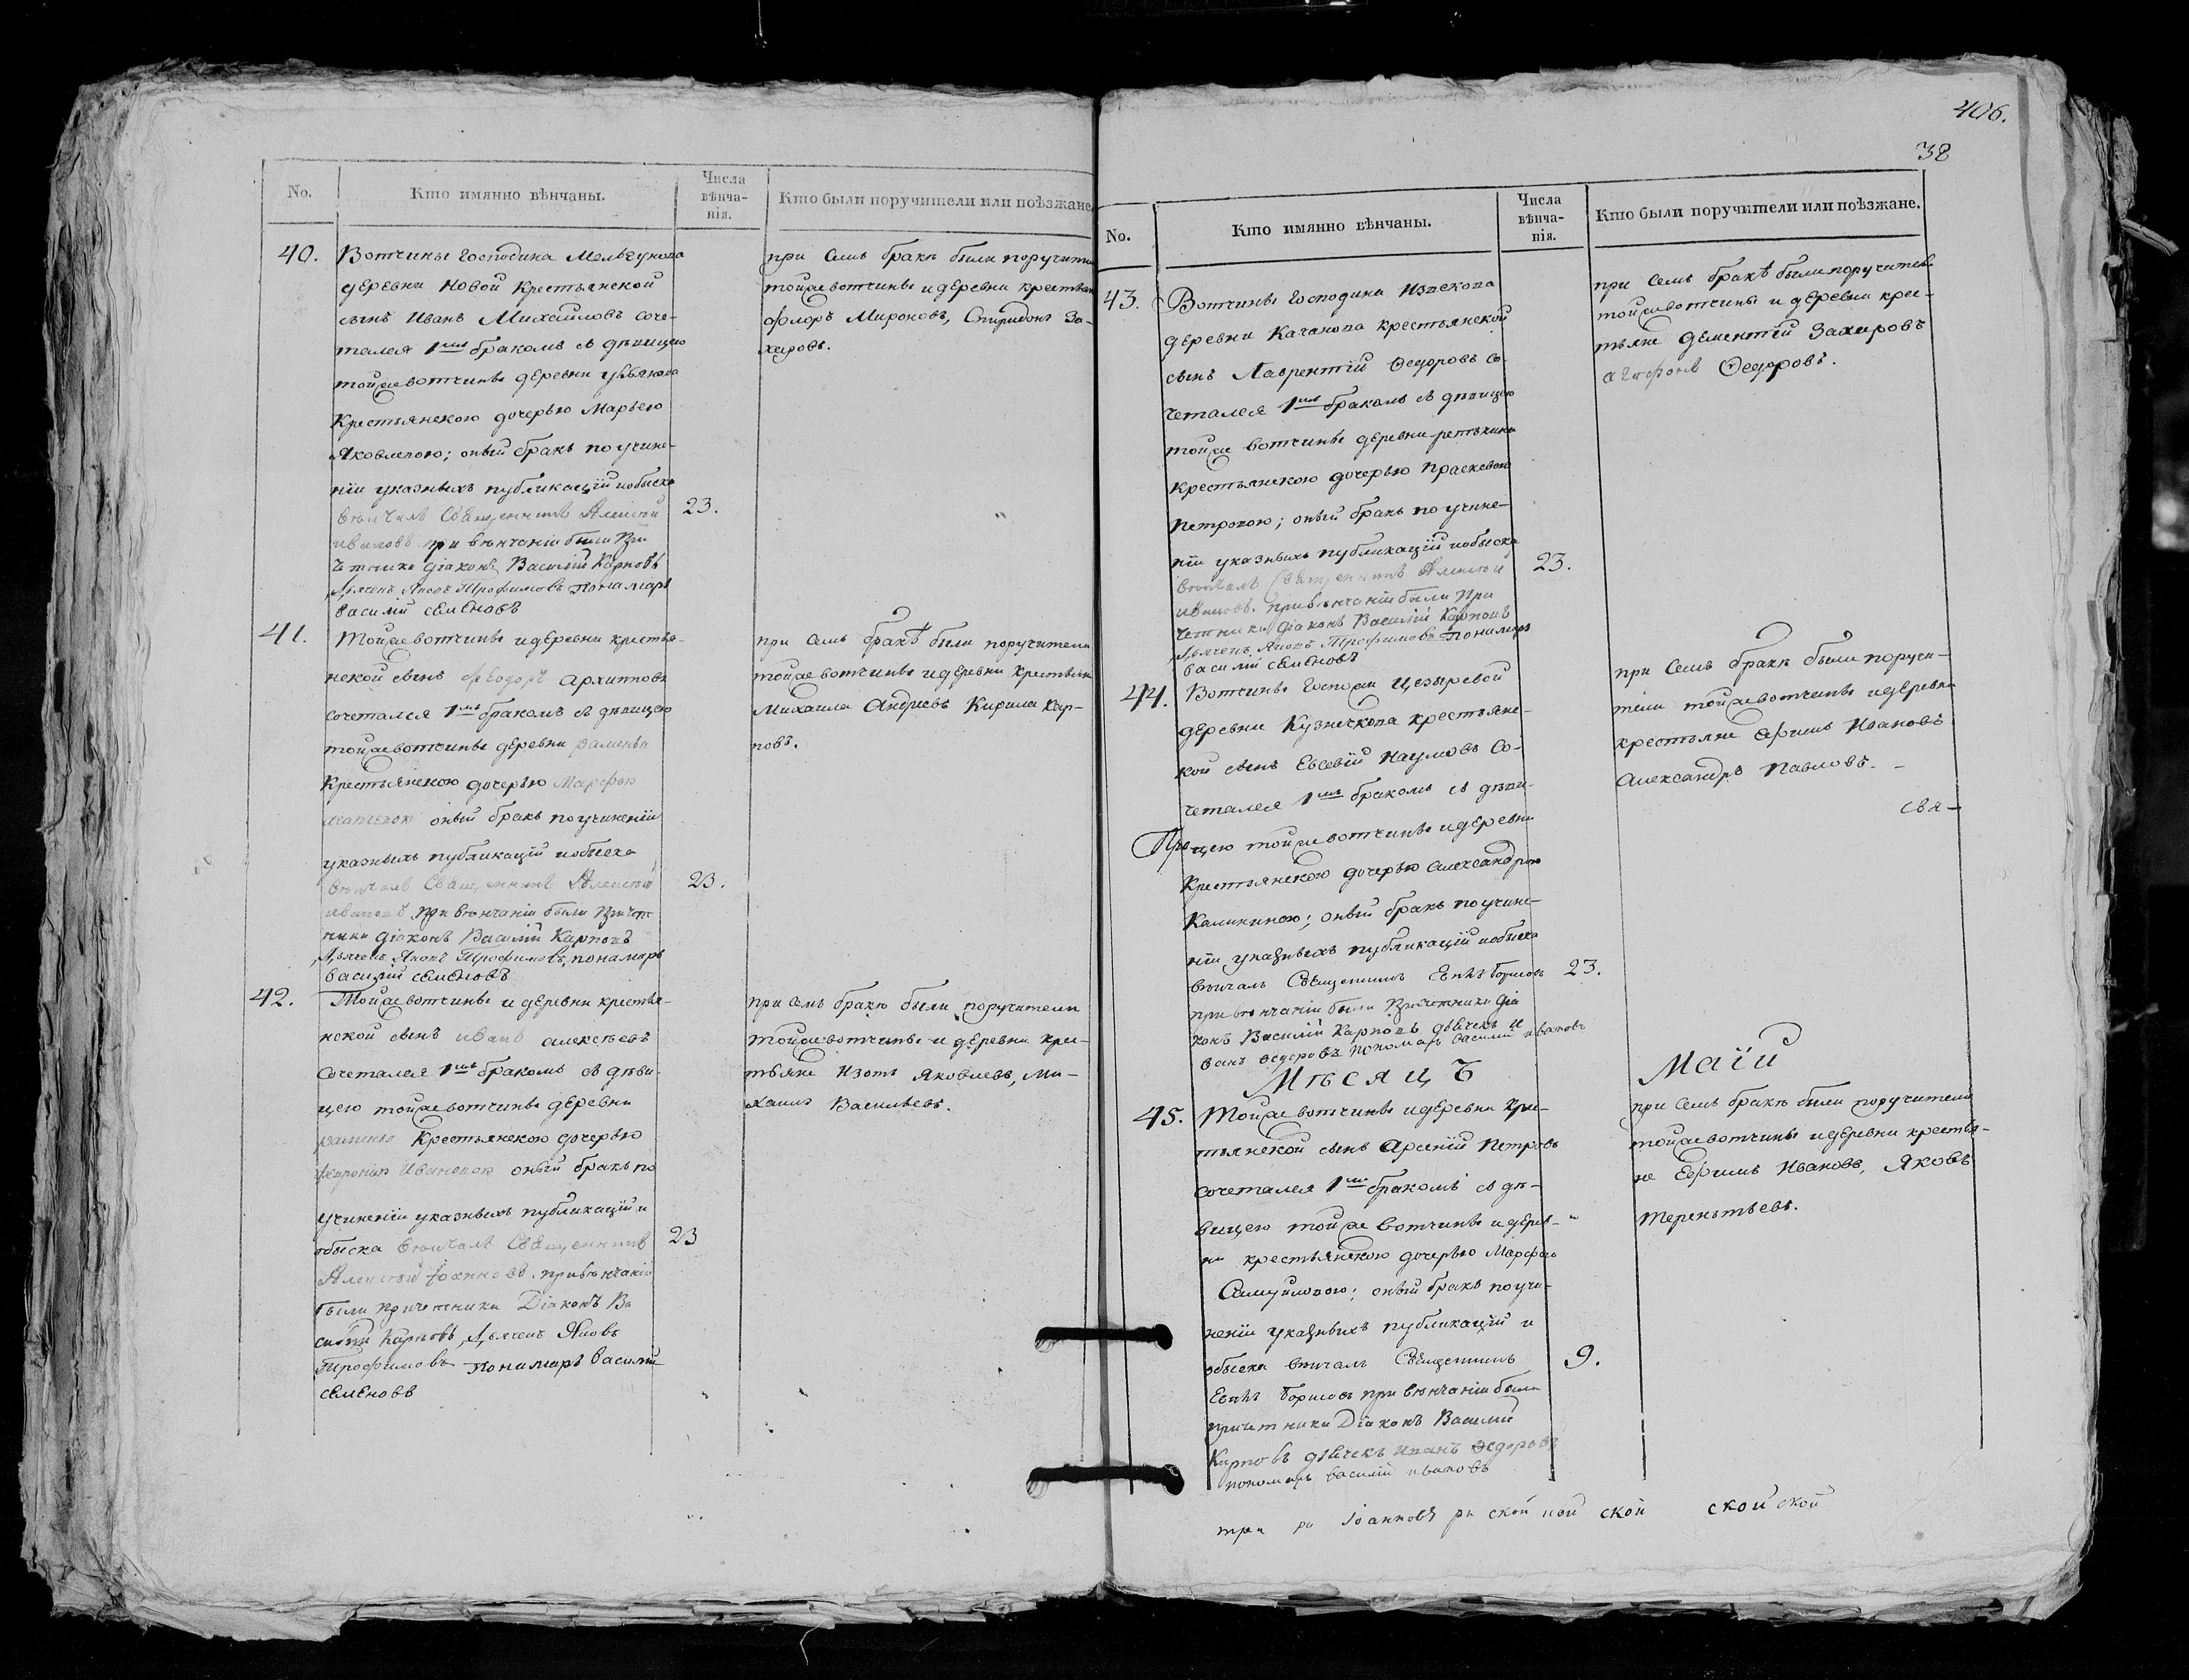 No.
Кто имянно вѣнчаны.
Числа
вѣнча-
нія.
Кто были поручители или поѣзжане.
40.
Вотчины Господина Мельгунова
деревни Новой Крестьянской
сынъ Иванъ Михайловъ соче-
тался 1мъ бракомъ съ дѣвицею
тойже вотчины деревни
Крестьянскою дочерью Марьею
Яковлевою; оный бракъ по учине-
ніи указныхъ публикацій и обыска
вѣнчалъ Священникъ Алексѣй
ивановъ при вѣнчаніи были При
четники діаконъ Василій Карповъ
Дьячекъ Яковъ Трофимовъ Пономарь
Василій семеновъ
23.
при семъ бракѣ были поручители
тойже вотчины и деревни крестьяне
Флоръ Мироновъ, Спиридонъ За-
харовъ.
41.
Тойже вотчины и деревни крестья-
нской сынъ Феодоръ Архиповъ
сочетался 1мъ бракомъ съ дѣвицею
тойже вотчины деревни раменья
Крестьянскою дочерью Марфою
оный бракъ по учиненіи
указныхъ публикацій и обыска
вѣнчалъ Священникъ Алексѣй
ивановъ при вѣнчаніи были Причет
ники діаконъ Василій Карповъ
Дьячекъ Яковъ Трофимовъ, пономарь
василій семеновъ
23.
при семъ бракѣ были поручители
тойже вотчины и деревни крестьяне
Михаила Андреевъ Кирила Кар-
повъ.
42.
Тойже вотчины и деревни крестья-
нской сынъ иванъ алексѣевъ
сочетался 1мъ бракомъ съ дѣви-
цею тойже вотчины деревни
раменья Крестьянскою дочерью
Ивановою оный бракъ по
учиненіи указныхъ публикацій и
обыска вѣнчалъ Священникъ
Алексѣй Іоанновъ. при вѣнчаніи
были причетники Діаконъ Ва
силій Карповъ, Дьячекъ Яковъ
Трофимовъ пономарь василій
семеновъ
23
при семъ бракѣ были поручители
тойже вотчины и деревни кре-
стьяне Изотъ Яковлевъ, Ми-
хаилъ Васильевъ.
406.
38
No.
Кто имянно вѣнчаны.
Числа
вѣнча-
нія.
Кто были поручители или поѣзжане.
43.
Вотчины Господина
деревни Качанова крестьянской
сынъ Лаврентій Ѳедоровъ со-
четался 1мъ бракомъ съ дѣвицею
тойже вотчины деревни
Крестьянскою дочерью Праскевою
Петровою; оный бракъ по учине-
ніи указныхъ публикацій и обыска
вѣнчалъ Священникъ Алексѣй
ивановъ. при вѣнчаніи были При
четники діаконъ Василій Карповъ
Дьячекъ Яковъ Трофимовъ Пономарь
василій семеновъ
23.
при семъ бракѣ были поручители
тойже вотчины и деревни крес-
тьяне Дементій Захаровъ
Ѳедоровъ.
44.
Вотчины Госпожи Цезыревой
деревни Кузнечкова крестьянс-
кой сынъ Евсевій Наумовъ Со-
четался 1мъ бракомъ съ дѣви-
цею тойже вотчины и деревни
Крестьянскою дочерью Александрою
Калининою; оный бракъ по учине-
ніи указныхъ публикацій и обыска
вѣнчалъ Священникъ Борисовъ
при вѣнчаніи были Причетники діа
конъ Василій Карповъ дьячекъ И
ванъ ѳедоровъ пономарь василій ивановъ
23.
при семъ бракѣ были поручи-
тели тойже вотчины и деревни
крестьяне Ефимъ Ивановъ
Александръ Павловъ. -
свя-
Мѣсяцъ
Маій
45.
Тойже вотчины и деревни кре-
стьянской сынъ Арсеній Петровъ
сочетался 1мъ бракомъ съ дѣ-
вицею тойже вотчины и дерев-
ни крестьянскою дочерью Марфою
Самуиловою; оный бракъ по учи-
неніи указныхъ публикацій и
обыска вѣнчалъ Священникъ
Борисовъ при вѣнчаніи были
причетники Діаконъ Василій
Карповъ дьячекъ Иванъ ѳедоровъ
пономарь василій ивановъ
9.
при семъ бракѣ были поручители
тойже вотчины и деревни крестья-
не Ефимъ Ивановъ, Яковъ
Терентьевъ.
три Іоанновъ ской ской ской ской